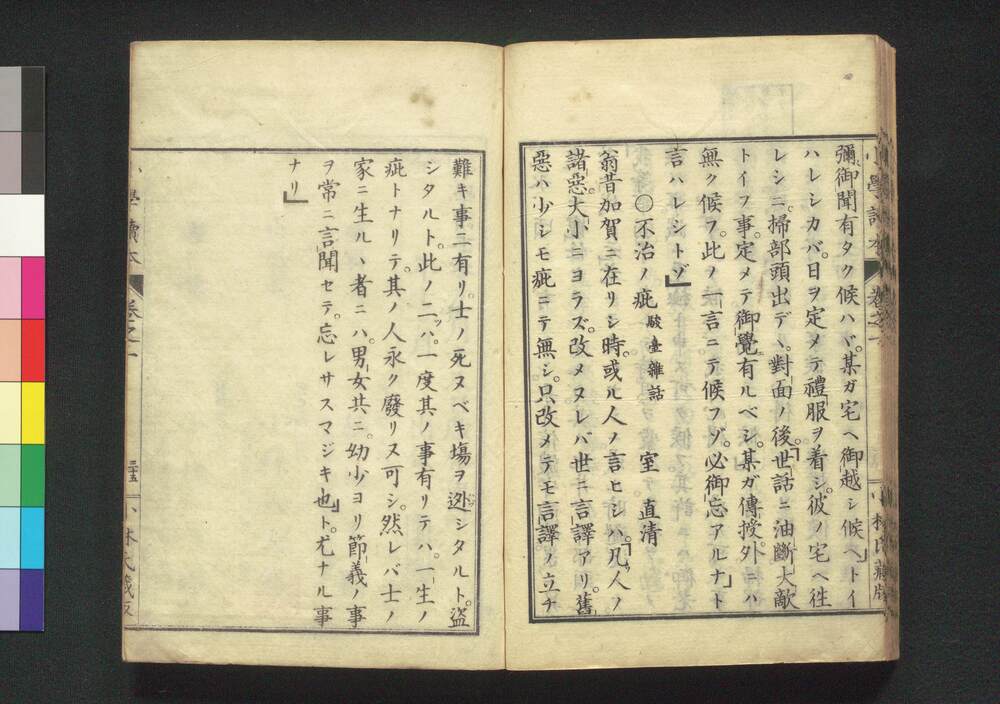 彌御聞有タク候ハヾ。某ガ宅ヘ御越シ候ヘ」トイ
ハレシカバ。日ヲ定メテ禮服ヲ着シ。彼ノ宅ヘ往
レシニ。掃部頭出デヽ。對面ノ後。「世話ニ油斷大敵
トイフ事。定メテ御覺有ルベシ。某ガ傳授。外ニハ
無ク候フ。此ノ一言ニテ候フゾ。必御忘アルナ」ト
言ハレシトゾ」
〇不治ノ疵 駿臺雜話 室 直清
翁昔加賀ニ在リシ時。或ル人ノ言ヒシハ。「凡人ノ
諸惡。大小ニヨラズ。改メヌレバ世ニ言譯アリ。舊
惡ハ少シモ疵ニテ無シ。只改メテモ言譯ノ立チ
難キ事二有リ。士ノ死ヌベキ塲ヲ迯シタルト。盜
シタルト。此ノ二ツハ。一度其ノ事有リテハ。一生ノ
疵トナリテ。其ノ人永ク廢リス可シ。然レバ士ノ
家ニ生ルヽ者ニハ。男女共ニ。幼少ヨリ節義ノ事
ヲ常ニ言聞セテ。忘レサスマジキ也」ト。尤ナル事
ナリ」
小學讀本
卷之一
三十五
小林氏藏版